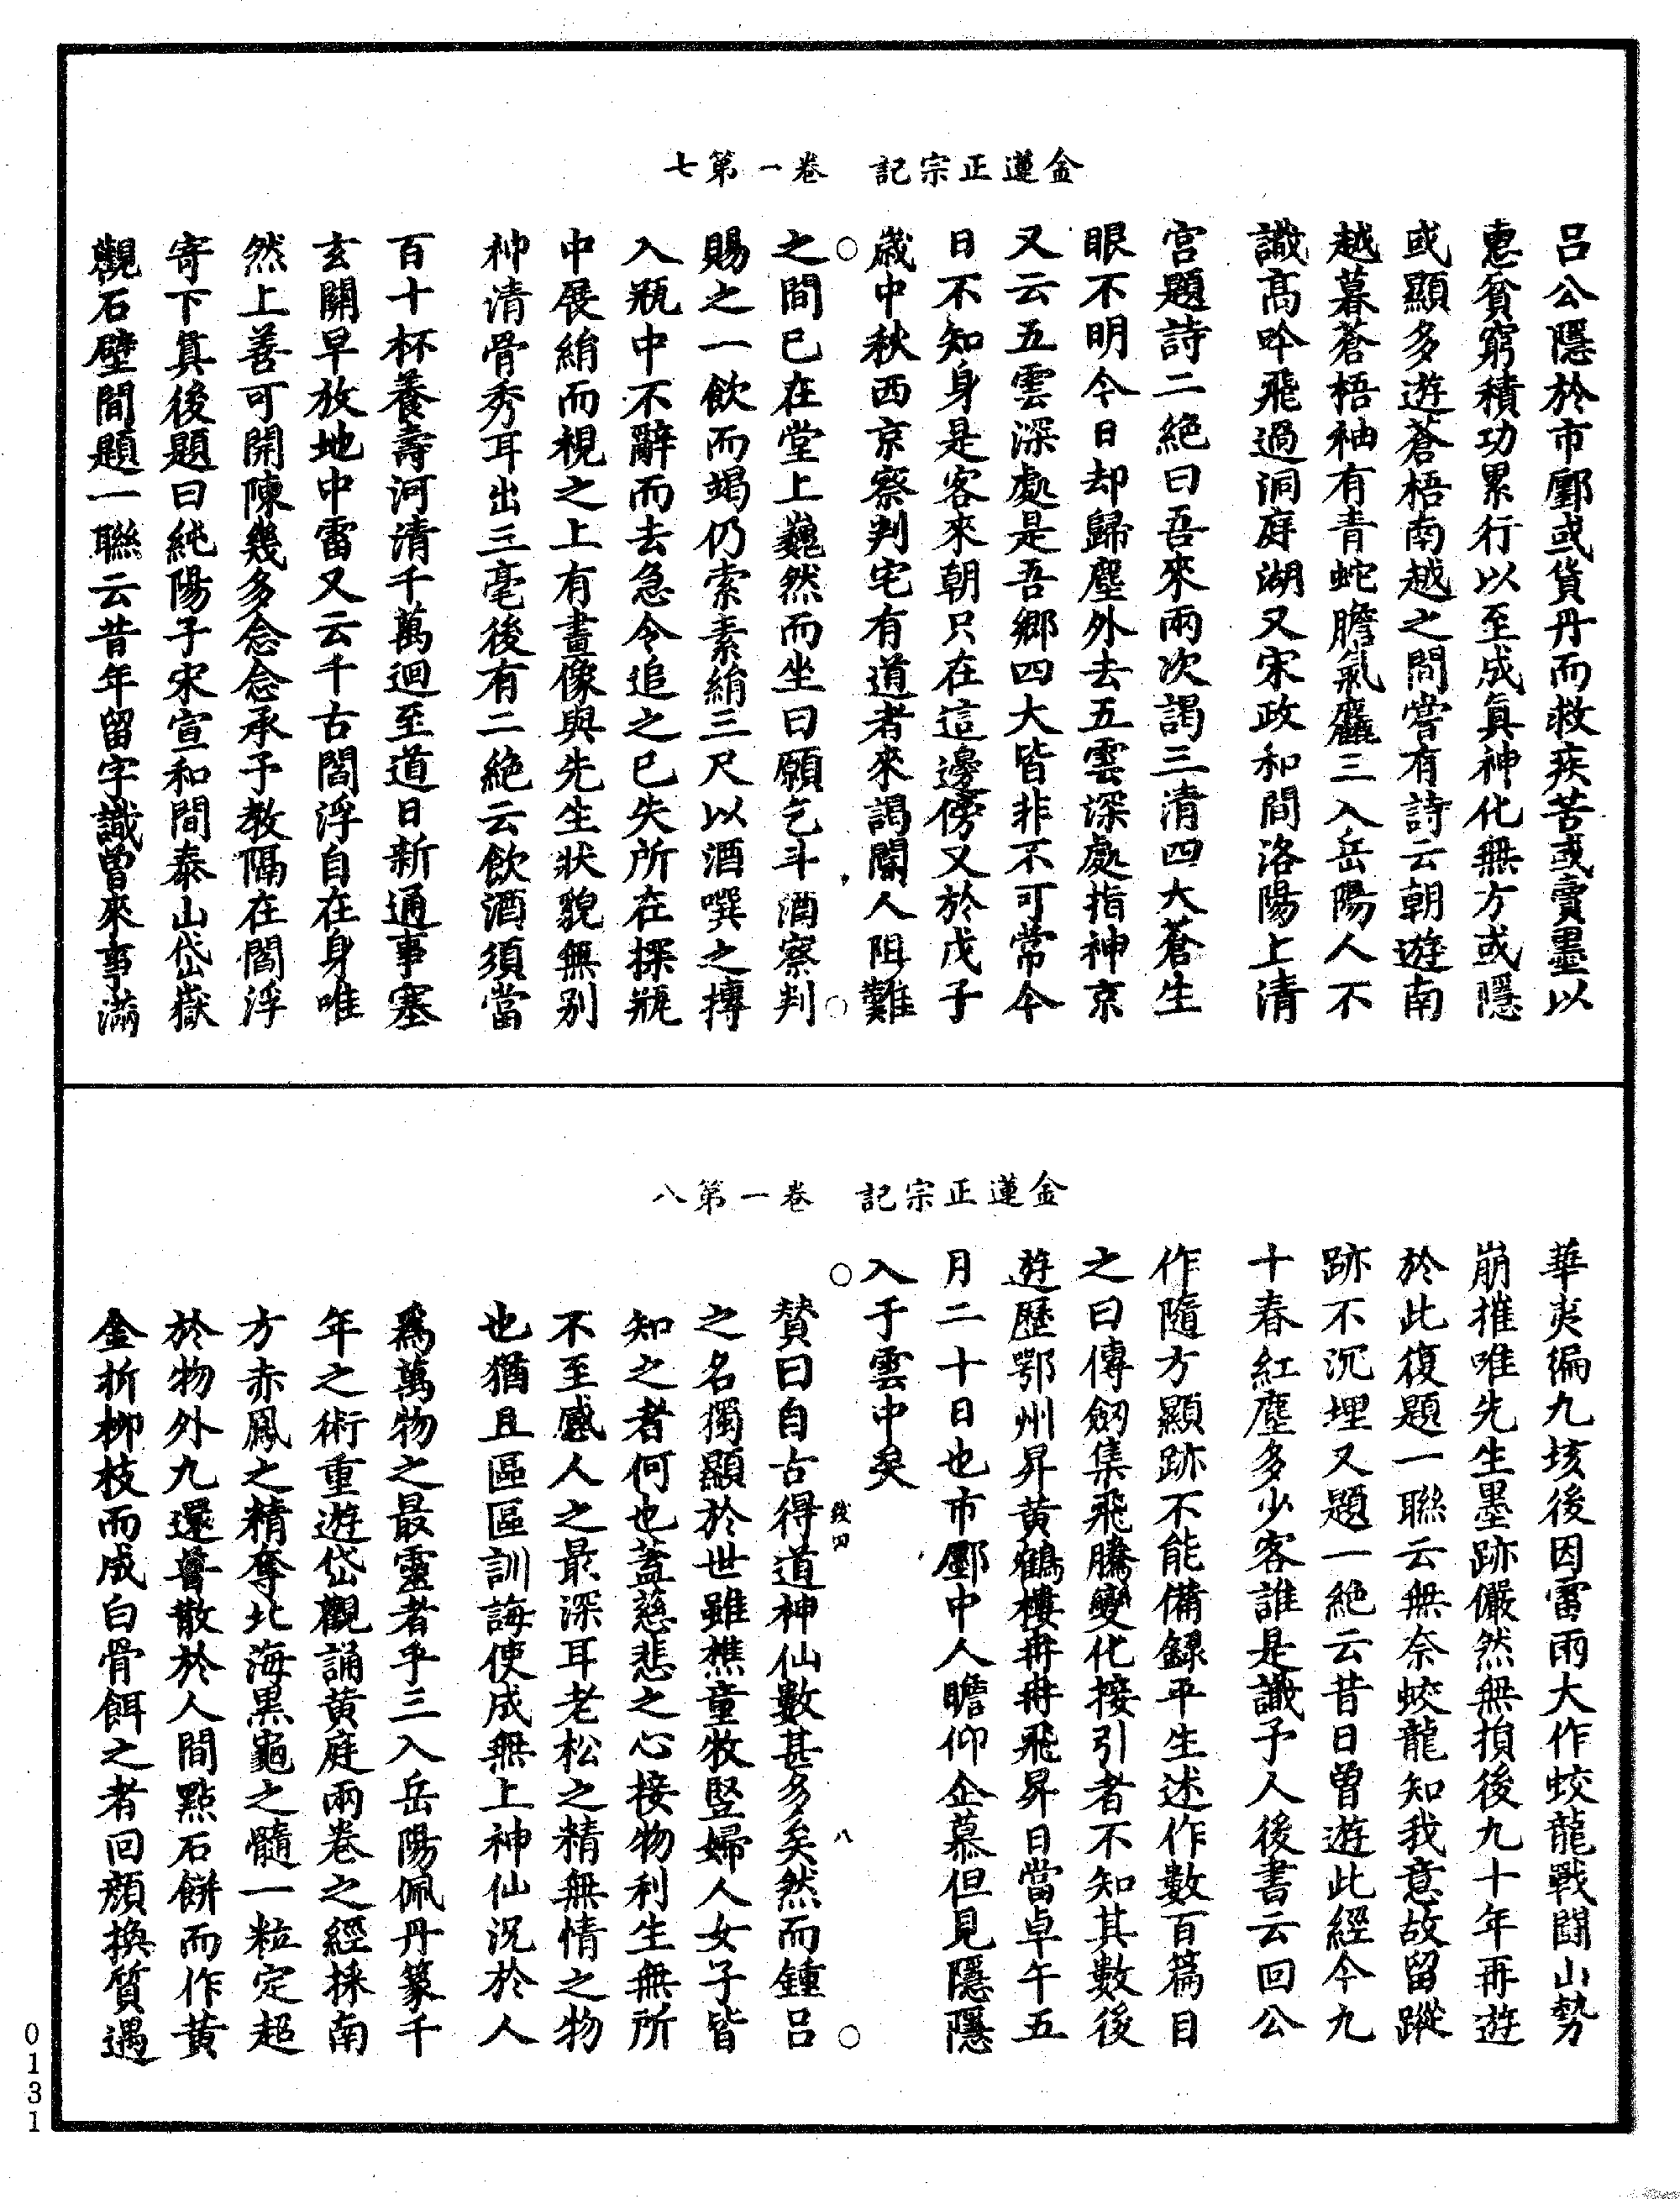 金蓮正宗記　卷一第七
呂公隱於市鄽或貨丹而救疾苦或賣墨以
惠貧窮積功累行以至成真神化無方或隱
或顯多遊蒼梧南越之間嘗有詩云朝遊南
越暮蒼梧袖有青蛇膽氣麤三入岳陽人不
識高吟飛過洞庭湖又宋政和間洛陽上清
宮題詩二絕曰吾來兩次謁三清四大蒼生
眼不明今日却歸塵外去五雲深處指神京
又云五雲深處是吾鄉四大皆非不可常今
日不知身是客來朝只在這邊傍又於戊子
歲中秋西京察判宅有道者來謁閽人阻難
之間已在堂上巍然而坐曰願乞斗酒察判
賜之一飲而竭仍索素絹三尺以酒噀之摶
入瓶中不辭而去急令追之已失所在探瓶
中展絹而視之上有畫像與先生狀貌無別
神清骨秀耳出三毫後有二絕云飲酒須當
百十杯養壽河清千萬迴至道日新通事塞
玄關早放地中雷又云千古閻浮自在身唯
然上善可開陳幾多念念承予教隔在閻浮
寄下真後題曰純陽子宋宣和間泰山岱嶽
觀石壁間題一聯云昔年留字識曾來事滿
金蓮正宗記　卷一第八
華夷徧九垓後因雷雨大作蛟龍戰鬭山勢
崩摧唯先生墨跡儼然無損後九十年再遊
於此復題一聯云無奈蛟龍知我意故留蹤
跡不沉埋又題一絕云昔日曾遊此經今九
十春紅塵多少客誰是識予人後書云回公
作隨方顯跡不能備録平生述作數百篇目
之曰傳劔集飛騰變化接引者不知其數後
遊歷鄂州昇黃鶴樓冉冉飛昇日當卓午五
月二十日也市鄽中人瞻仰企慕但見隱隱
入于雲中矣
贊曰自古得道神仙數甚多矣然而鍾呂
之名獨顯於世雖樵童牧豎婦人女子皆
知之者何也蓋慈悲之心接物利生無所
不至感人之最深耳老松之精無情之物
也猶且區區訓誨使成無上神仙況於人
爲萬物之最靈者乎三入岳陽佩丹篆千
年之術重遊岱觀誦黃庭兩卷之經採南
方赤鳳之精奪北海黑龜之髓一粒定超
於物外九還普散於人間點石餅而作黃
金折柳枝而成白骨餌之者回顏換質遇
八
0131